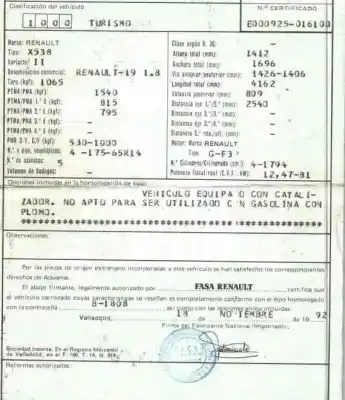 Clasificación del vehículo
Nº CERTIFICADO
1 0 0 0 TURISMO E000925-016100
Marca: RENAULT
Tipo: X538
Variante: II
Denominación comercial: RENAULT-19 1.8
Tara (kgf): 1065
PTMA/PMA (kgf): 1540
PTMA/PMA 1.º E (kgf): 815
PTMA/PMA 2.º E (kgf): 795
PTMA/PMA 3.º E (kgf): -
PTMA/PMA 4.º E (kgf): -
530-1000
N.º y dim. neumáticos: 4 -175-65R14
N.º de asientos: 5
Volumen de Bodegas: -
Clase según R. 36: -
Altura total (mm): 1412
Anchura total (mm): 1696
Vía anterior/posterior (mm): 1426-1406
Longitud total (mm): 4162
Voladizo posterior (mm): 809
Distancia eje 1.º/2.º (mm): 2540
Distancia eje 2.º/3.º (mm): -
Distancia eje 3.º/4.º (mm): -
-
Motor: Marca RENAULT
Tipo: G-F3
N.º Cilindros/Cilindrada (cm): 4-1794
Potencia fiscal/real (C.V.F. kW): 12,47-81
Opciones incluidas en la homologación de tipo:
VEHICULO EQUIPA O CON CATALI-
ZADOR. NO APTO PARA SER UTILIZADO C N GASOLINA CON
PLOMO.
Observaciones:
Por las piezas de origen extranjero incorporadas a este vehículo se han satisfecho los correspondientes
derechos de Aduanas.
El abajo firmante, legalmente autorizado por FASA RENAULT certifica que
el vehículo carrozado cuyas características se reseñan es completamente conforme con el tipo homologado
con la contraseña B-1808
Valladolid, 18 de NO IEMBRE de 19 92
Firma del Fabricante Nacional
Sociedad inscrita: En el Registro Mercantil
de Valladolid, en el F. 166, T. 14,
Reformas autorizadas: